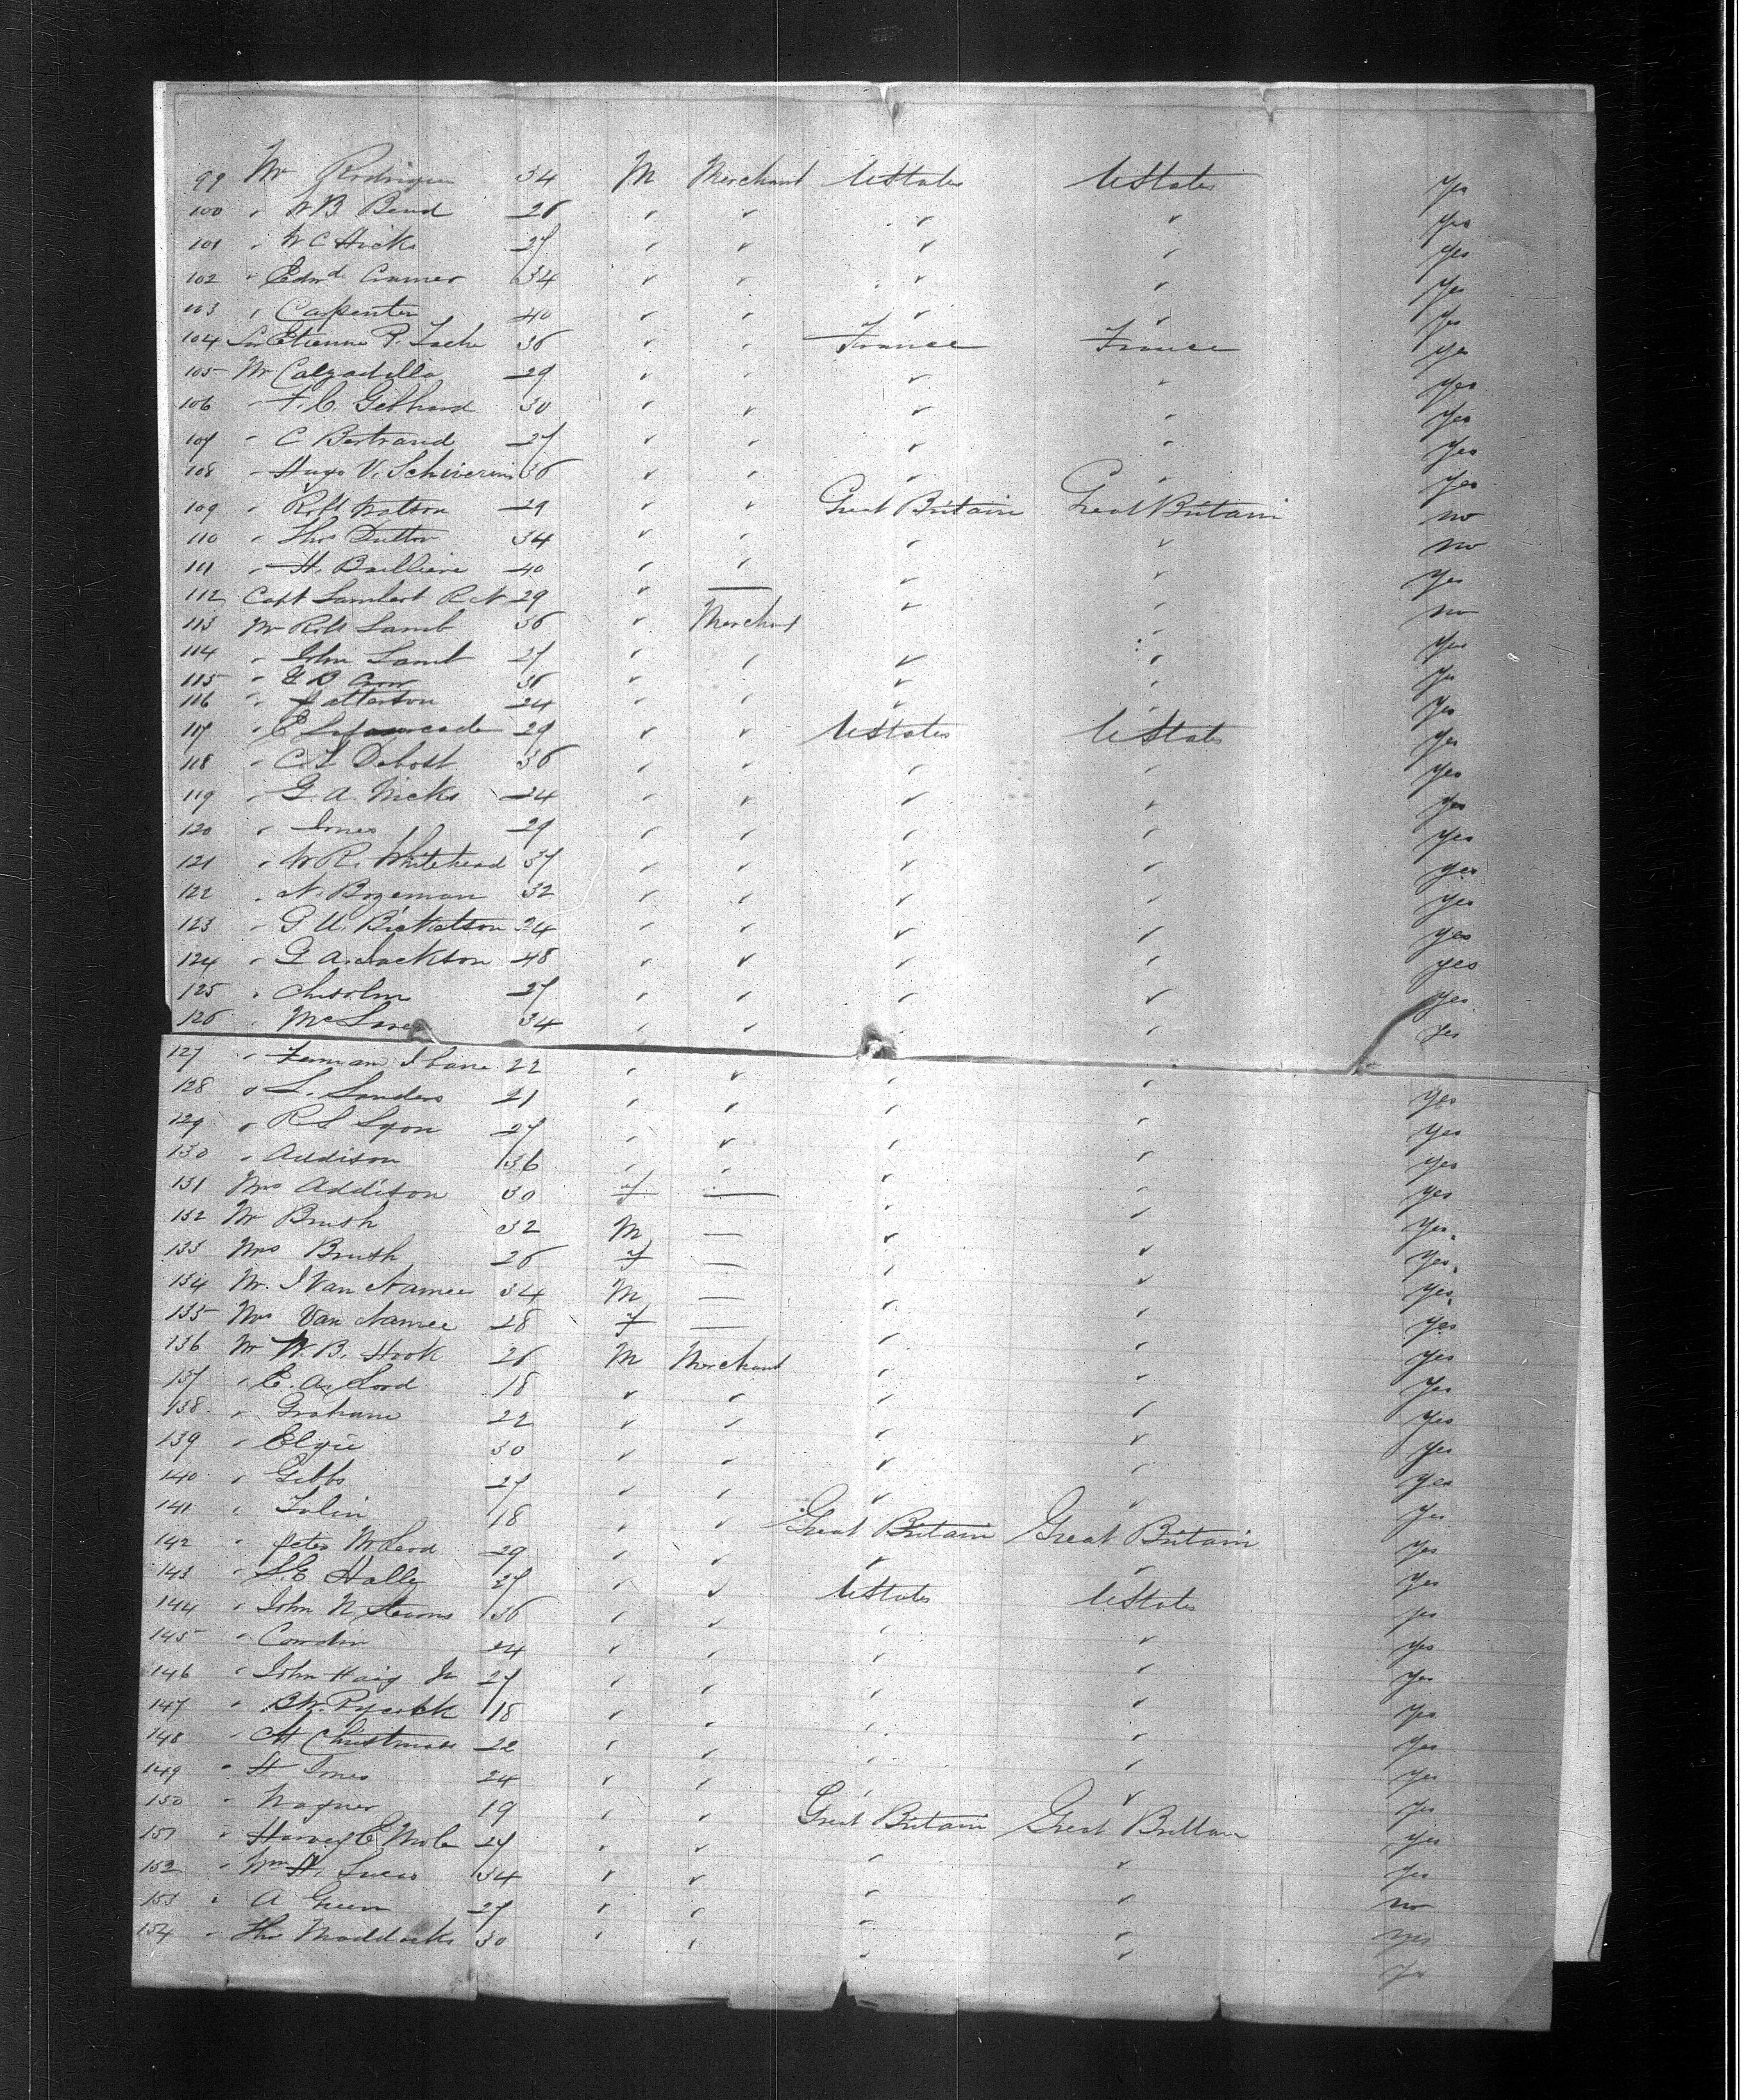 99 Mr Rodrigue 34 M Merchant UStates UStates Yes
100 " W B Bend 26 " " " " Yes
101 " W C Hicks 27 " " " " Yes
102 " Edwd. Cramer 34 " " " " Yes
103 " Carpenter 40 " " " " Yes
104 Sir Etienne P. Tache 36 " " France France Yes
105 Mr Calzadilla 29 " " " " Yes
106 " F. C. Gebhard 30 " " " " Yes
107 " C Bertrand 27 " " " " Yes
108 " Hugo V. Schiverin 36 " " " " Yes
109 " Robt Watson 29 " " Great Britain Great Britain no
110 " Thos Dutton 34 " " " " no
111 " H. Bailliere 40 " " " " Yes
112 Capt Lambert R N 29 " — " " no
113 Mr Robt Lamb 36 " Merchant " " Yes
114 " John Lamb 27 " " " " Yes
115 " B 36 " " " " Yes
116 " Patterson 24 " " " " Yes
117 " E 29 " " UStates UStates Yes
118 " C. L Debost 36 " " " " Yes
119 " G. A. Hicks 24 " " " " Yes
120 " Jones 29 " " " " Yes
121 " W R. Whitehead 37 " " " " Yes
122 " N. Bozeman 32 " " " " Yes
123 " G U. Ricketson 24 " " " " Yes
124 " G A. Jackson 48 " " " " Yes
125 " Chisolm 27 " " " " Yes
126 " 34 " " " " Yes
127 " 22 " " " " Yes
128 " L. Sanders 21 " " " " Yes
129 " R S Lyon 27 " " " " Yes
130 " Addison 36 " " " " Yes
131 Mrs Addison 30 f — " " Yes
132 Mr Brush 32 M — " " Yes
133 Mrs Brush 26 f — " " Yes
134 Mr. J Van Namee 34 M — " " Yes
135 Mrs Van Namee 28 f — " " Yes
136 Mr W. B. Hook 26 M Merchant " " Yes
137 " E. A. Lord 18 " " " " Yes
138 " Graham 22 " " " " Yes
139 " Elgie 30 " " " " Yes
140 " Gibbs 27 " " " " Yes
141 " Tolin 18 " " Great Britain Great Britain Yes
142 " Peter McLeod 29 " " " " Yes
143 " S. E Halle 27 " " UStates UStates Yes
144 " John N Stearns 36 " " " " Yes
145 " Cowdin 24 " " " " Yes
146 " John Haig Jr 27 " " " " Yes
147 " B W. Pycock 18 " " " " Yes
148 " Christmas 22 " " " " Yes
149 " H Jones 24 " " " " Yes
150 " Wagner 19 " " Great Britain Great Britain Yes
151 " Harvey E 27 " " " " Yes
152 " Wm H. Lucas 34 " " " " no
153 " A Green 27 " " " " Yes
154 " Thos Maddocks 30 " " " " Yes